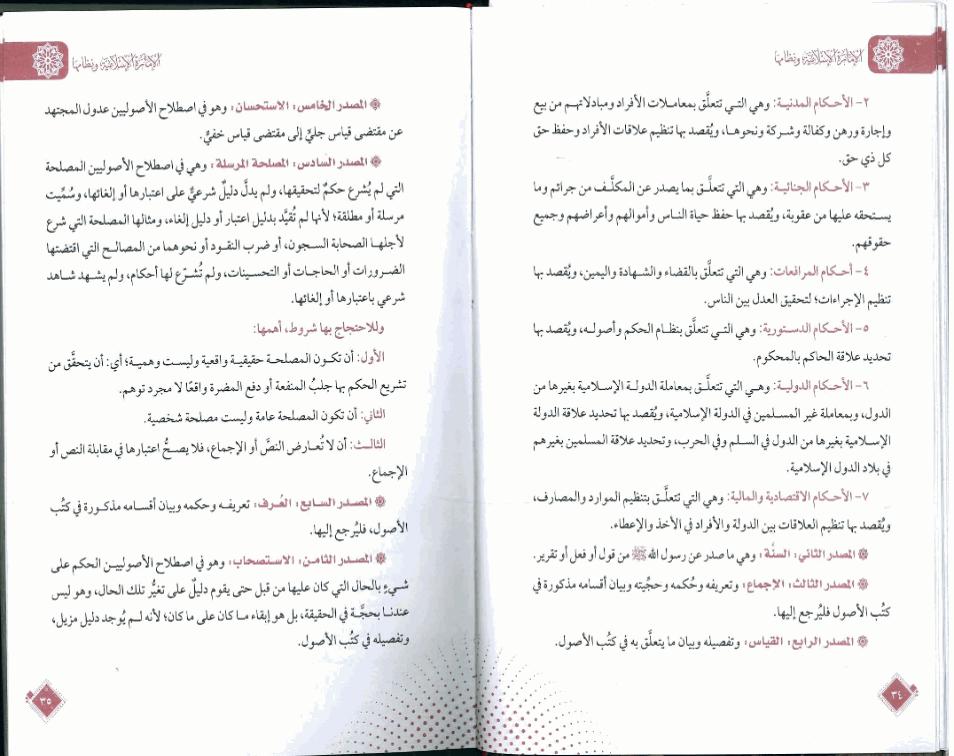 الإمارة الإسلامية ونظامها
٢- الأحكام المدنية: وهي التي تتعلَّق بمعاملات الأفراد ومبادلاتهم من بيع
وإجارة ورهن وكفالة وشركة ونحوها، ويُقصد بها تنظيم علاقات الأفراد وحفظ حق
كل ذي حق.
٣- الأحكام الجنائية: وهي التي تتعلَّق بما يصدر عن المكلَّف من جرائم وما
يستحقه عليها من عقوبة، ويُقصد بها حفظ حياة الناس وأموالهم وأعراضهم وجميع
حقوقهم.
٤- أحكام المرافعات: وهي التي تتعلَّق بالقضاء والشهادة واليمين، ويُقصد بها
تنظيم الإجراءات؛ لتحقيق العدل بين الناس.
٥- الأحكام الدستورية: وهي التي تتعلَّق بنظام الحكم وأصوله، ويُقصد بها
تحديد علاقة الحاكم بالمحكوم.
٦- الأحكام الدولية: وهي التي تتعلَّق بمعاملة الدولة الإسلامية بغيرها من
الدول، وبمعاملة غير المسلمين في الدولة الإسلامية، ويُقصد بها تحديد علاقة الدولة
الإسلامية بغيرها من الدول في السلم وفي الحرب، وتحديد علاقة المسلمين بغيرهم
في بلاد الدول الإسلامية.
٧- الأحكام الاقتصادية والمالية: وهي التي تتعلَّق بتنظيم الموارد والمصارف،
ويُقصد بها تنظيم العلاقات بين الدولة والأفراد في الأخذ والإعطاء.
المصدر الثاني: السنَّة: وهي ما صدر عن رسول الله ﷺ من قول أو فعل أو تقرير.
المصدر الثالث: الإجماع: وتعريفه وحُكمه وحجِّيته وبيان أقسامه مذكورة في
كتُب الأصول فليُرجع إليها.
المصدر الرابع: القياس: وتفصيله وبيان ما يتعلَّق به في كتُب الأصول.
٣٤
الإمارة الإسلامية ونظامها
المصدر الخامس: الاستحسان: وهو في اصطلاح الأصوليين عدول المجتهد
عن مقتضى قياس جليٍّ إلى مقتضى قياس خفيٍّ.
المصدر السادس: المصلحة المرسلة: وهي في اصطلاح الأصوليين المصلحة
التي لم يُشرع حكمٌ لتحقيقها، ولم يدلَّ دليلٌ شرعيٌّ على اعتبارها أو إلغائها، وسُمِّيت
مرسلة أو مطلقة؛ لأنها لم تُقيَّد بدليل اعتبار أو دليل إلغاء، ومثالها المصلحة التي شرع
لأجلها الصحابة السجون، أو ضرب النقود أو نحوهما من المصالح التي اقتضتها
الضرورات أو الحاجات أو التحسينات، ولم تُشرّع لها أحكام، ولم يشهد شاهد
شرعي باعتبارها أو إلغائها.
وللاحتجاج بها شروط، أهمها:
الأول: أن تكون المصلحة حقيقية واقعية وليست وهمية؛ أي: أن يتحقَّق من
تشريع الحكم بها جلبُ المنفعة أو دفع المضرة واقعًا لا مجرد توهم.
الثاني: أن تكون المصلحة عامة وليست مصلحة شخصية.
الثالث: أن لا تُعارض النصَّ أو الإجماع، فلا يصحُّ اعتبارها في مقابلة النص أو
الإجماع.
المصدر السابع: العُرف: تعريفه وحكمه وبيان أقسامه مذكورة في كتُب
الأصول، فليُرجع إليها.
المصدر الثامن: الاستصحاب: وهو في اصطلاح الأصوليين الحكم على
شيءٍ بالحال التي كان عليها من قبل حتى يقوم دليلٌ على تغيُّر تلك الحال، وهو ليس
عندنا بحجَّة في الحقيقة، بل هو إبقاء ما كان على ما كان؛ لأنه لم يُوجد دليل مزيل،
وتفصيله في كتُب الأصول.
٣٥